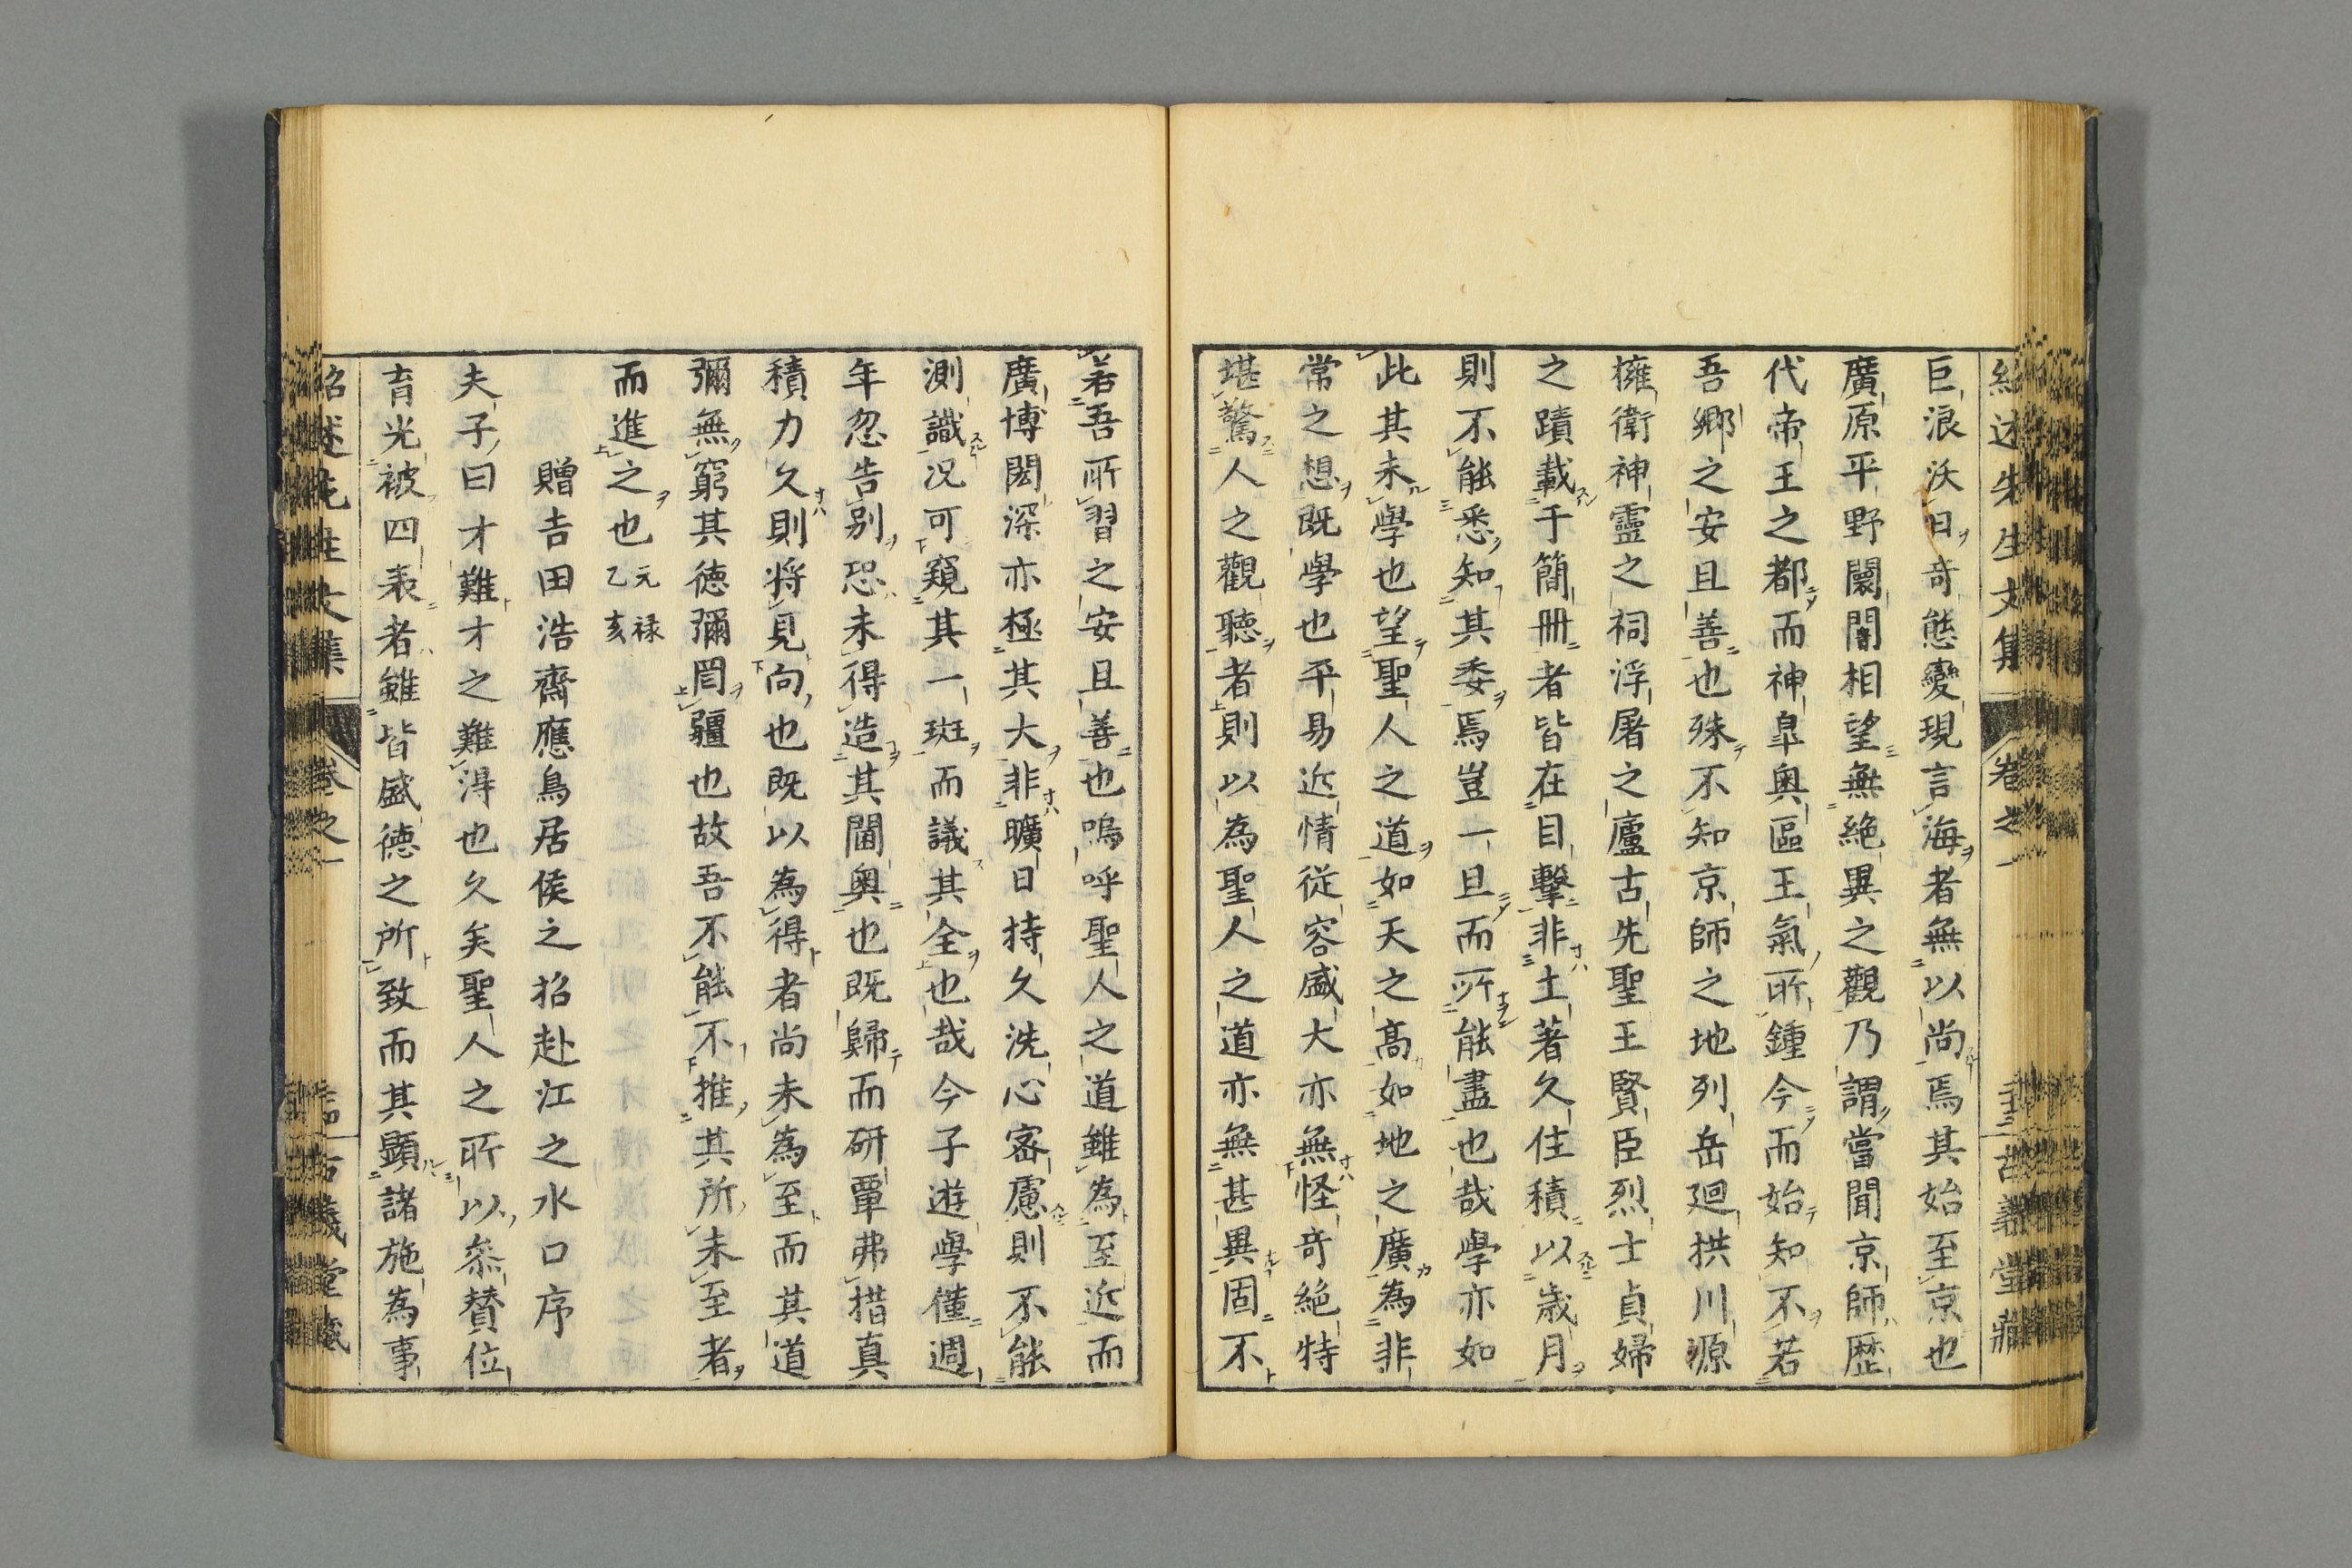 紹述先生文集 卷之一 古義堂藏
巨浪沃日奇態變現言海者無以尚焉其始至京也
廣原平野闤闠相望無絶異之觀乃謂當聞京師歴
代帝王之都而神皐奥區王氣所鍾今而始知不若
吾郷之安且善也殊不知京師之地列岳廻拱川源
擁衛神靈之祠浮屠之廬古先聖王賢臣烈士貞婦
之蹟載于簡冊者皆在目擊非土著久住積以歳月
則不能悉知其委焉豈一旦而所能盡也哉學亦如
此其未學也望聖人之道如天之髙如地之廣為非
常之想既學也平易近情從容盛大亦無怪奇絶特
堪驚人之觀聽者則以為聖人之道亦無甚異固不
若吾所習之安且善也嗚呼聖人之道雖為至近而
廣博閎深亦極其大非曠日持久洗心密慮則不能
測識况可窺其一斑而議其全也哉今子遊學僅週
年忽告别恐未得造其閫奥也既歸而研覃弗措真
積力久則將見向也既以為得者尚未為至而其道
彌無窮其德彌罔疆也故吾不能不推其所未至者
而進之也元禄乙亥
贈吉田浩齋應鳥居侯之招赴江之水口序
夫子曰才難才之難得也久矣聖人之所以叅賛位
育光被四表者雖皆盛德之所致而其顯諸施為事
紹述先生文集 卷之一 古義堂藏